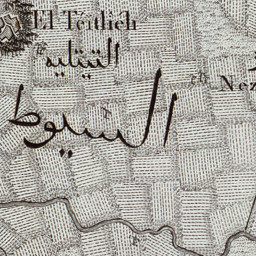 El Teitlieh
التيتليه
Nez
السيوط